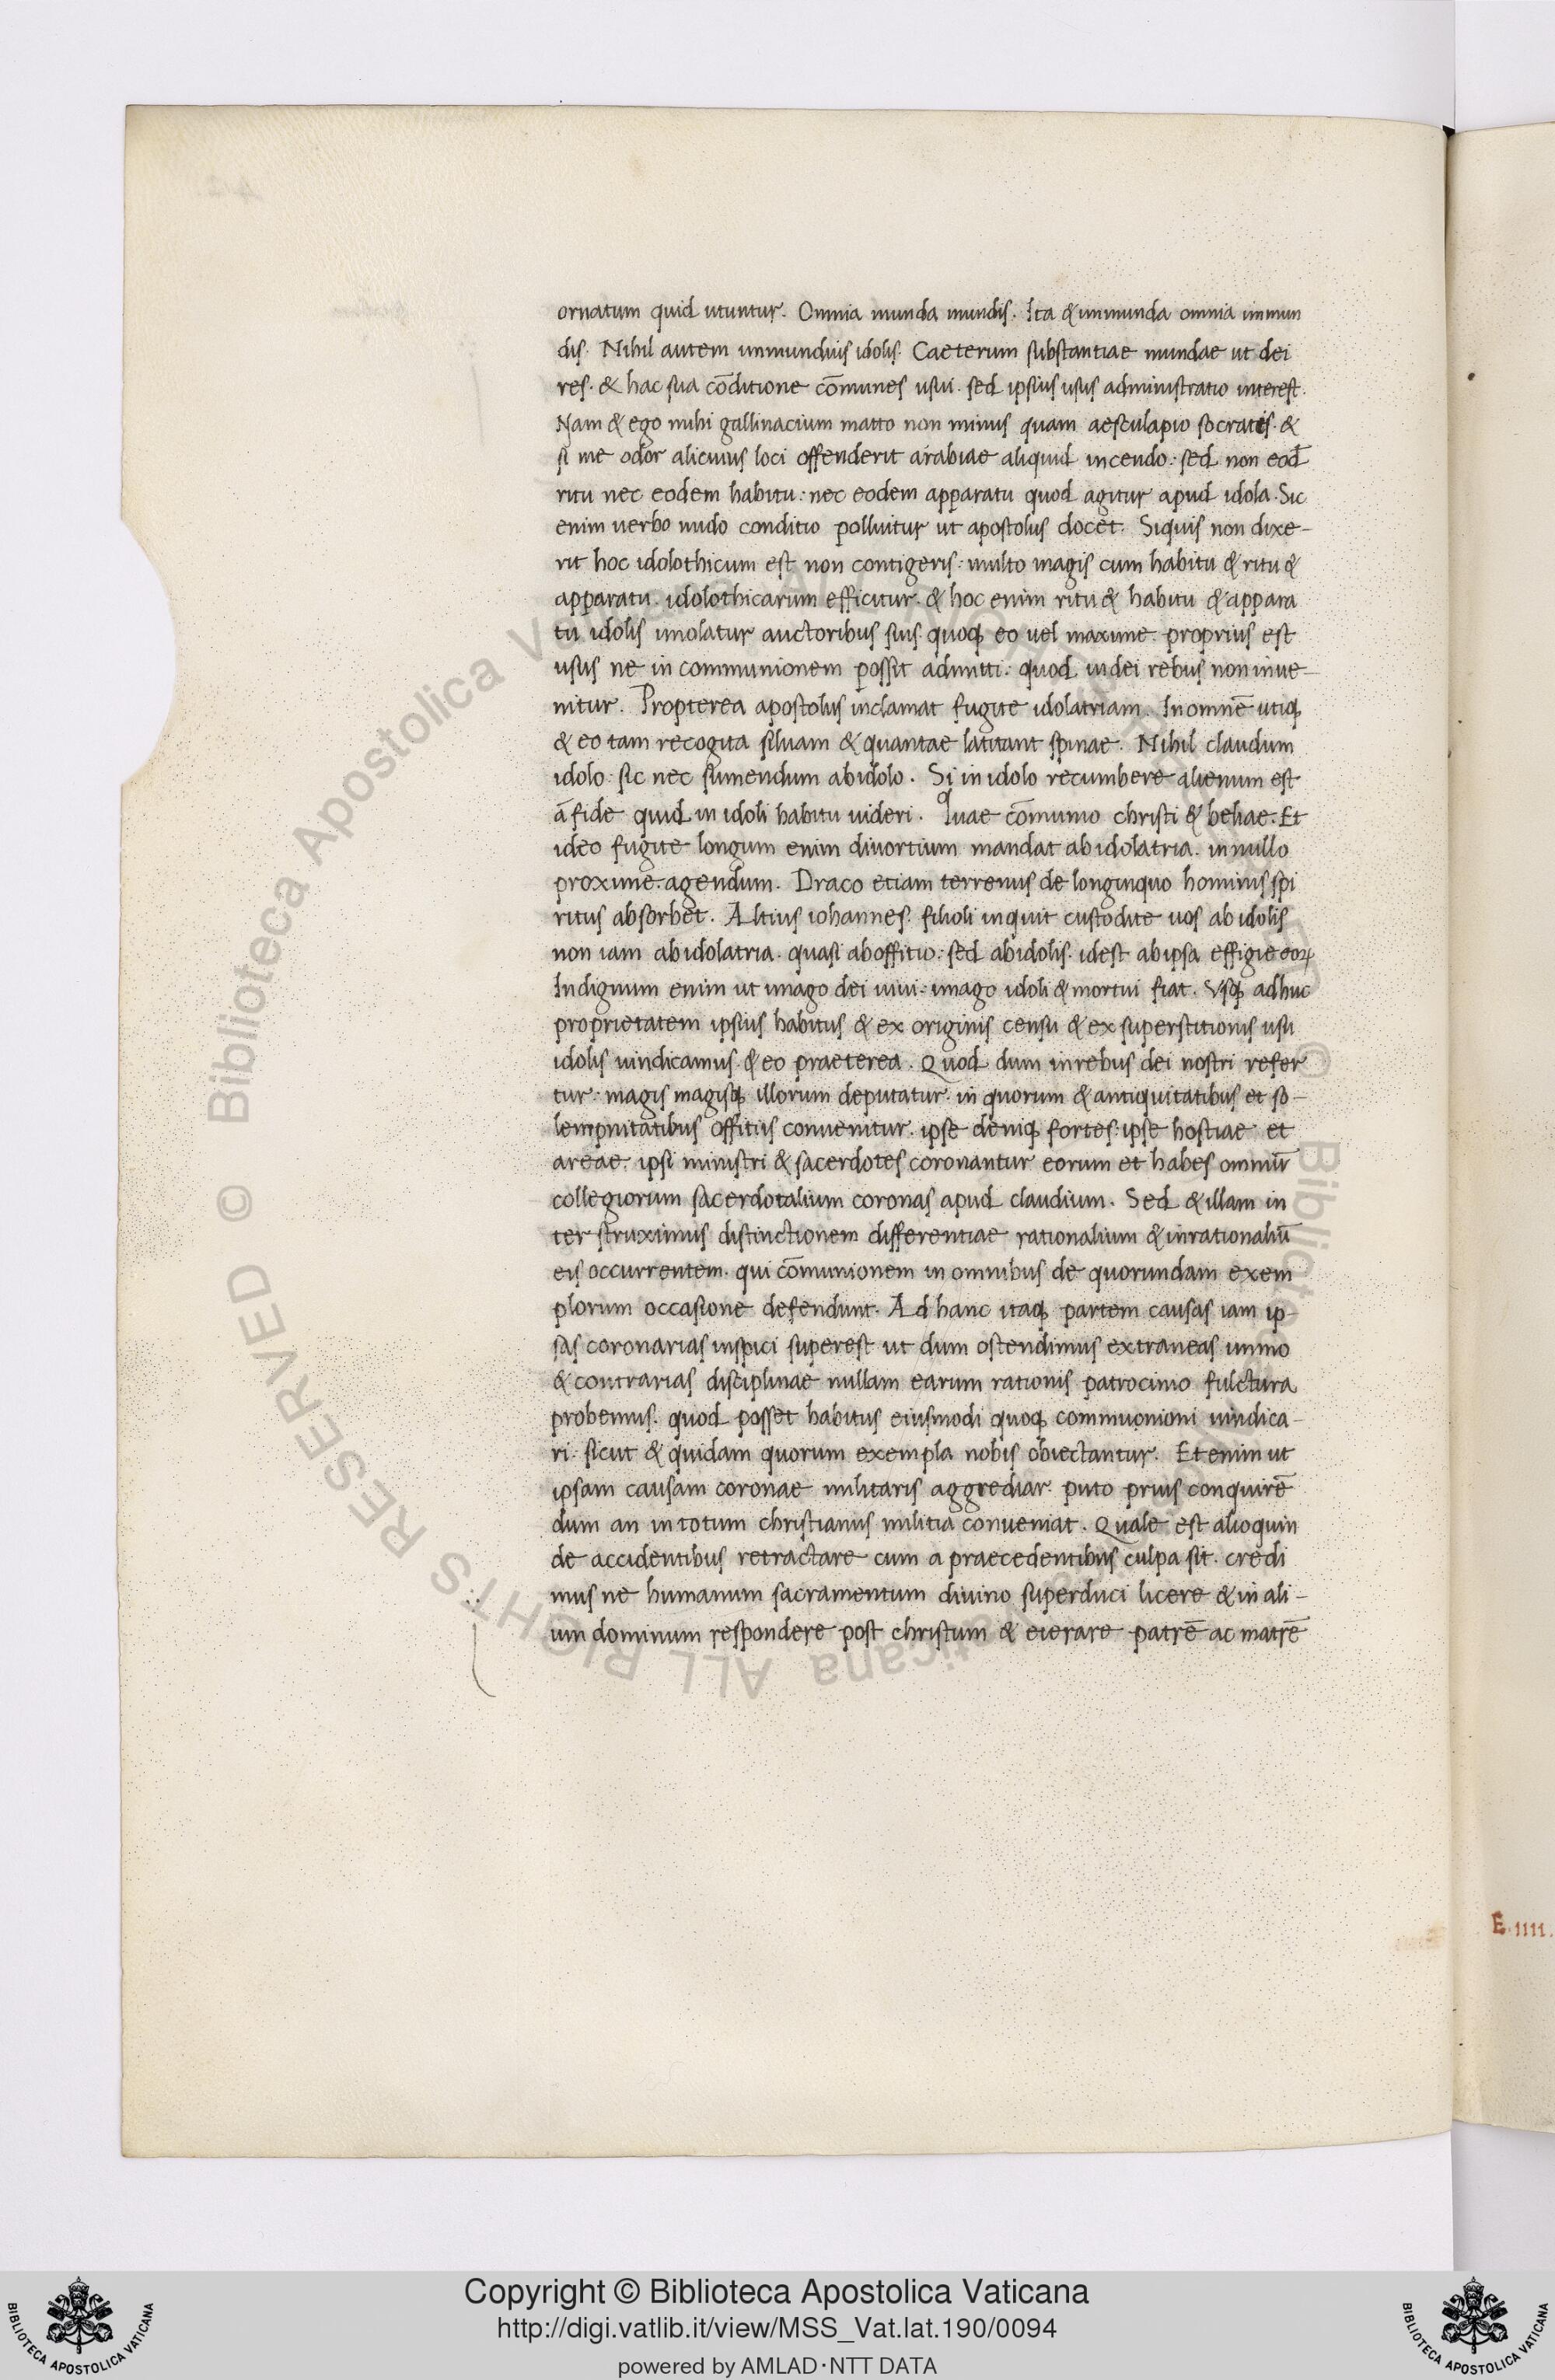 ornatum quid utuntur. Omnia munda mundis. Ita & immunda omnia immun
dis. Nihil autem immundius idolis. Caeterum substantiae mundae ut dei
res. & hac sua cōditione cōmunes usui. sed ipsius usus administratio interest.
Nam & ego mihi gallinacium macto non minus quam aesculapio socrates. &
si me odor alicuius loci offenderit arabiae aliquid incendo: sed non eod̄
ritu nec eodem habitu: nec eodem apparatu quod agitur apud idola. Sic
enim uerbo nudo conditio polluitur ut apostolus docet. Siquis non dixe-
rit hoc idolothicum est non contigeris: multo magis cum habitu & ritu &
apparatu. idolothicarum efficitur. & hoc enim ritu & habitu & appara
tu idolis imolatur auctoribus suis. quoq; eo uel maxime. proprius est
usus ne in communionem possit admitti: quod in dei rebus non inue-
nitur. Propterea apostolus inclamat fugite idolatriam. In omnē utiq;
& eo tam recogita siluam & quantae latitant spinae. Nihil claudum
idolo: sic nec sumendum ab idolo. Si in idolo recumbere alienum est
ā fide quid in idoli habitu uideri. Quae cōmunio christi & beliae. Et
ideo fugite longum enim diuortium mandat ab idolatria. in nullo
proxime. agendum. Draco etiam terrenus de longinquo hominis spi
ritus absorbet. Altius iohannes. filioli inquit custodite uos ab idolis
non iam ab idolatria. quasi ab offitio: sed ab idolis. idest ab ipsa effigie eoꝝ
Indignum enim ut imago dei uiui: imago idoli & mortui fiat. Vsq; adhuc
proprietatem ipsius habitus & ex originis censu & ex superstitionis usu
idolis uindicamus. & eo praeterea. Quod dum in rebus dei nostri refer
tur: magis magisq; illorum deputatur. in quorum & antiquitatibus et so-
lempnitatibus offitiis conuenitur. ipse deniq; fortes: ipse hostiae et
areae. ipsi ministri & sacerdotes coronantur eorum et habes omniū
collegiorum sacerdotalium coronas apud claudium. Sed & illam in
ter struximus distinctionem differentiae rationalium & inrationaliū
eis occurrentem. qui cōmunionem in omnibus de quorundam exem
plorum occasione defendunt. Ad hanc itaq; partem causas iam ip-
sas coronarias inspici superest ut dum ostendimus extraneas immo
& contrarias disciplinae nullam earum rationis patrocinio fulctura
probemus. quod posset habitus eiusmodi quoq; communioni uindica-
ri: sicut & quidam quorum exempla nobis obiectantur. Et enim ut
ipsam causam coronae militaris aggrediar. puto prius conquirē
dum an in totum christianus militia conueniat. Quale est alioquin
de accidentibus retractare cum a praecedentibus culpa sit. credi
mus ne humanum sacramentum diuino superduci licere & in ali-
um dominum respondere post christum & eierare patrē ac matrē
E.IIII.
© Biblioteca Apostolica Vaticana ALL RIGHTS RESERVED
Copyright © Biblioteca Apostolica Vaticana
http://digi.vatlib.it/view/MSS_Vat.lat.190/0094
powered by AMLAD·NTT DATA
BIBLIOTECA APOSTOLICA VATICANA
BIBLIOTECA APOSTOLICA VATICANA